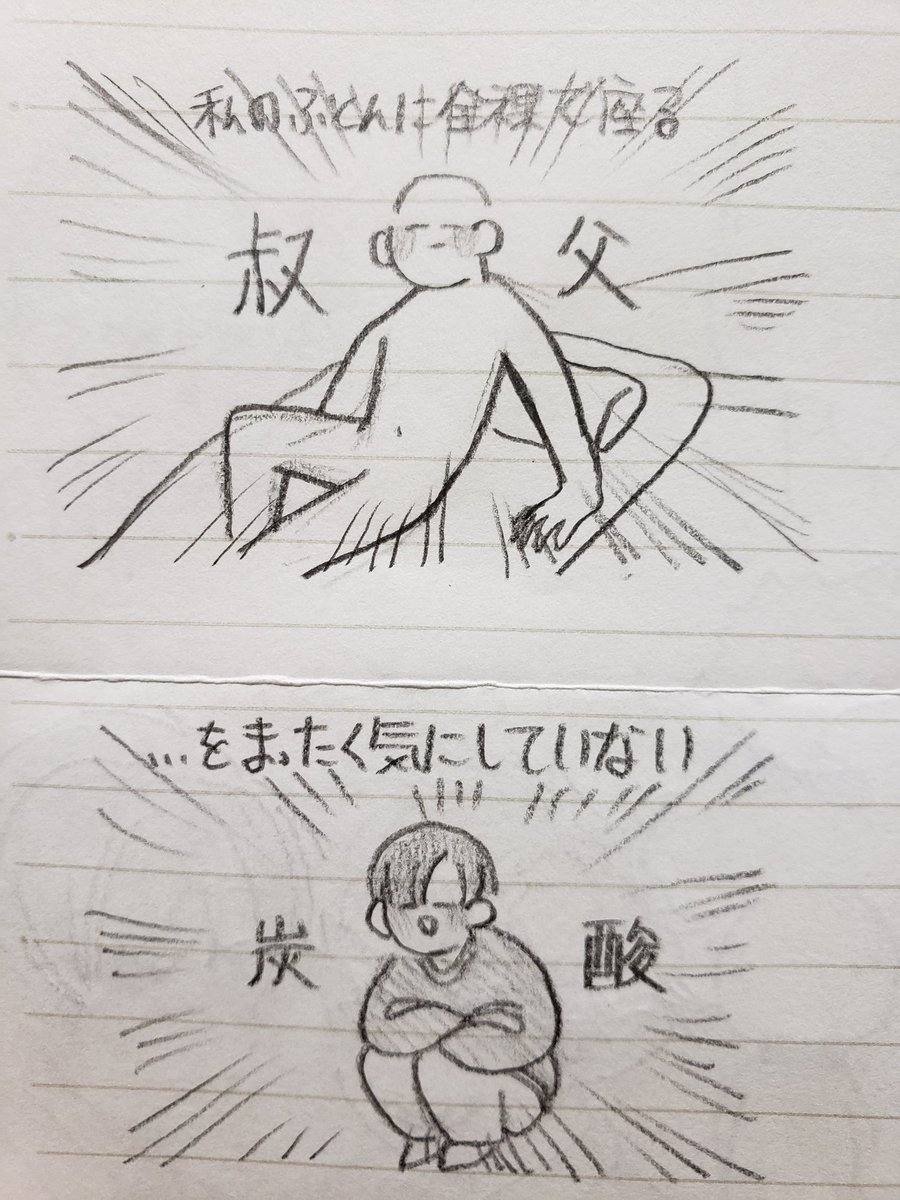 私のふとんに全裸で座る
叔 父
…をまったく気にしていない
炭 酸